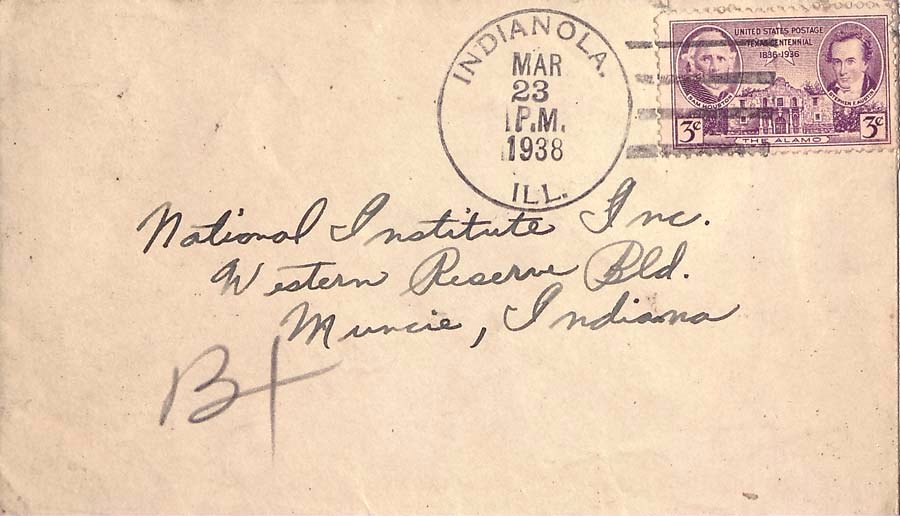 INDIANOLA.
MAR
23
P.M.
1938
ILL.
UNITED STATES POSTAGE
TEXAS CENTENNIAL
1836-1936
SAM HOUSTON
STEPHEN F. AUSTIN
3¢
3¢
THE ALAMO
National Institute Inc.
Western Reserve Bld.
Muncie, Indiana
B+